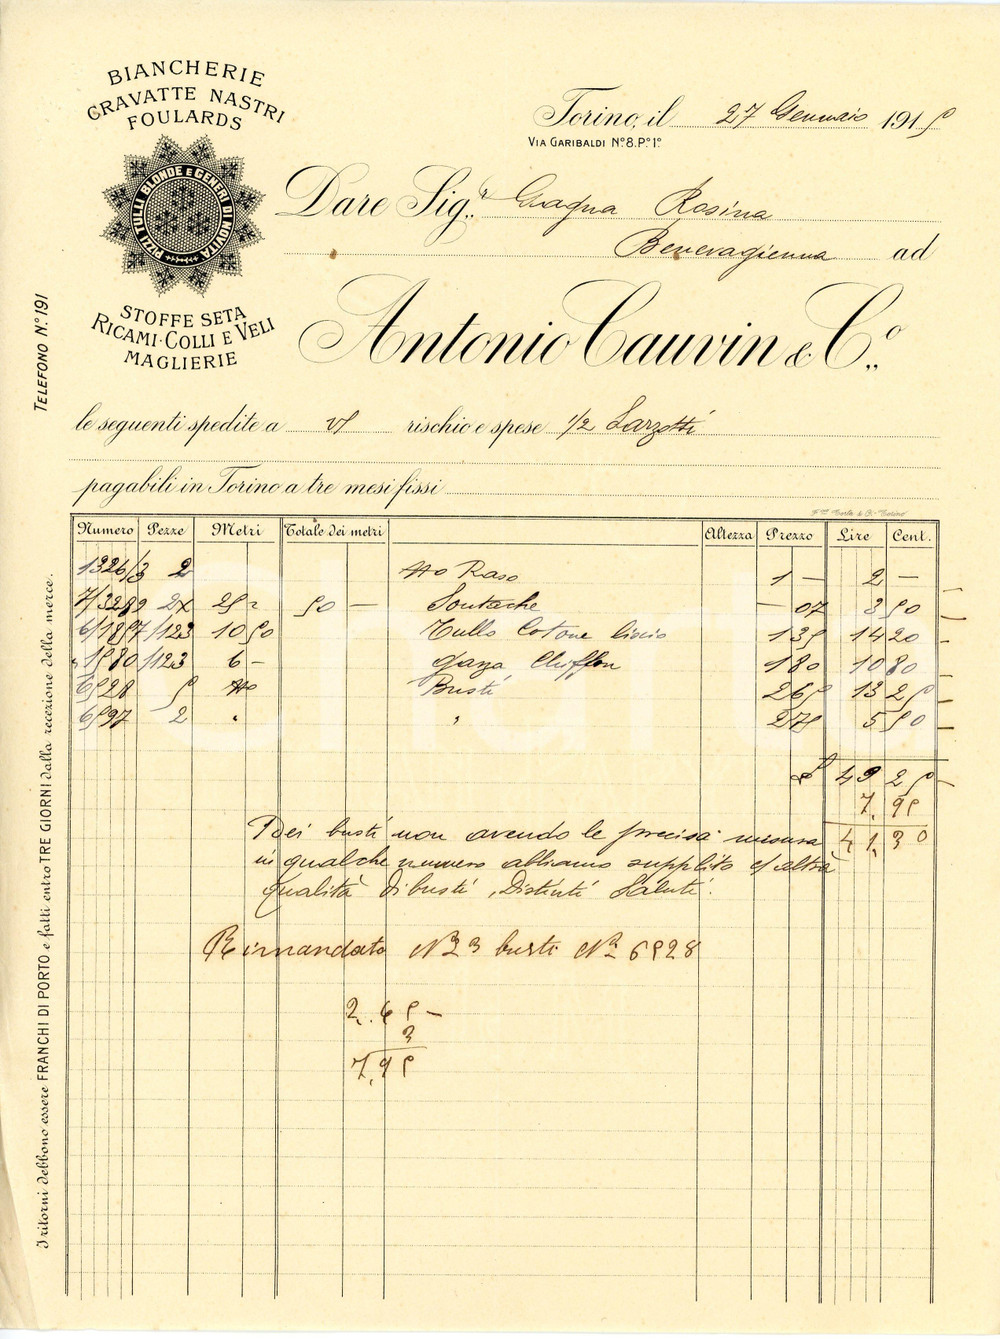 BIANCHERIE
CRAVATTE NASTRI
FOULARDS
PIZZI TULLI BLONDE E GENERI DI NOVITÀ
STOFFE SETA
RICAMI-COLLI E VELI
MAGLIERIE
TELEFONO N.° 191
Torino, il 27 Gennaio 1915
VIA GARIBALDI N.° 8. P.° 1.°
Dare Sig.r Gragna Rosina
Benevagienna ad
Antonio Cauvin & C.o
le seguenti spedite a v/ rischio e spese 1/2 Sarzotti
pagabili in Torino a tre mesi fissi
Numero Pezze Metri Totale dei metri Altezza Prezzo Lire Cent.
1326/3 2 Raso 1 — 2 —
7/3289 2x 25 50 — Soutache — 07 3 50
6/1857/123 10 50 Tullo Cotone liscio 1 35 14 20
" 1580/123 6 — Gaza Chiffon 1 80 10 80
6528 5 Busti 2 65 13 25
6597 2 " " 2 75 5 50
£ 49 25
7.95
41.30
Dei busti non avendo le precisa misura
in qualche numero abbiamo supplito c/ altra
qualità di busti. Distinti Saluti.
Rimandato N° 3 busti N° 6528
2.65 —
3
7,95
I ritorni debbono essere FRANCHI DI PORTO e fatti entro TRE GIORNI dalla recezione della merce.